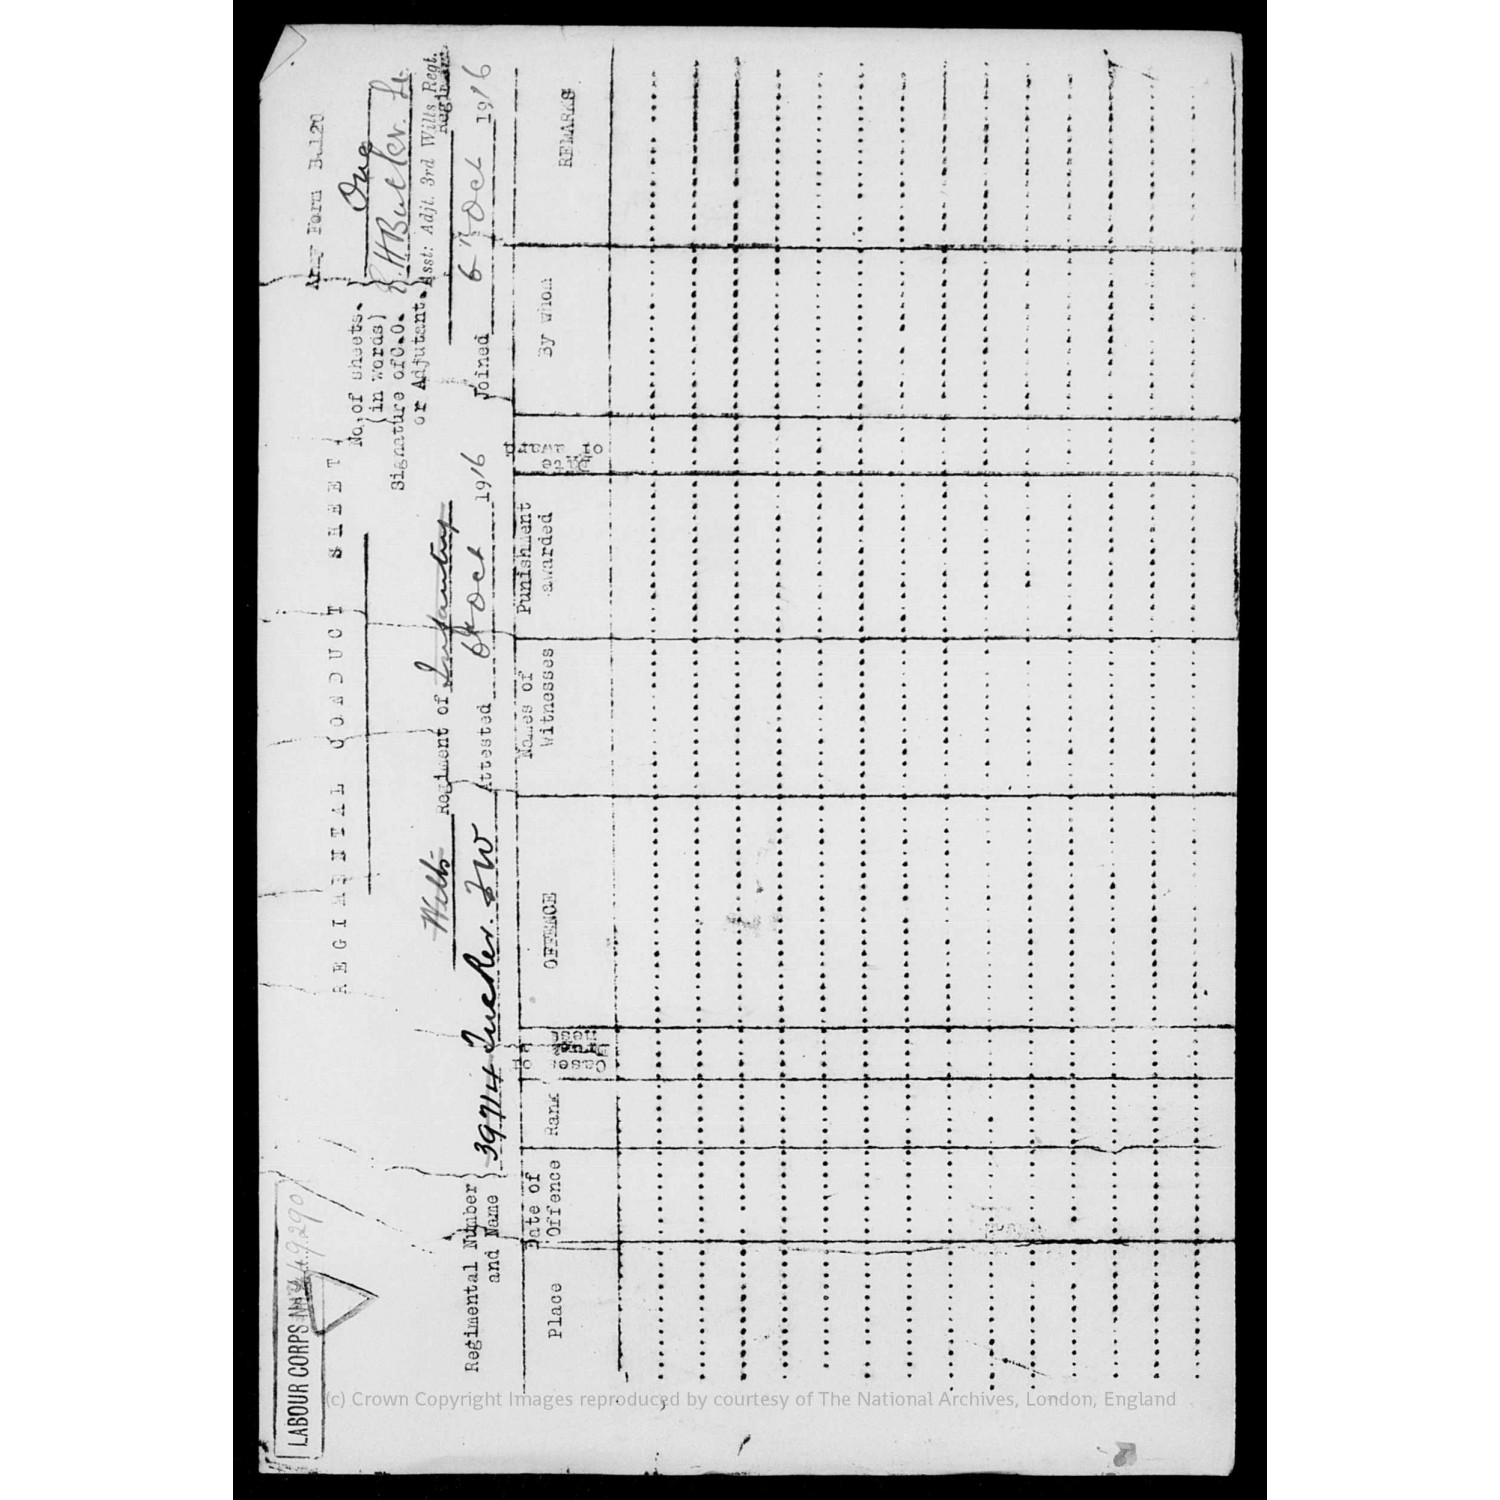 Army Form B.120
REGIMENTAL CONDUCT SHEET.
No. of sheets. (in words) One
Signature of C.O. or Adjutant. Butler. Lt
Asst: Adjt. 3rd Wilts Regt.
Regiment
Wilts Regiment of Infantry
Regimental Number and Name } 39714 Tucker. F W { Attested 6 Oct 1916 { Joined 6 Oct 1916
Place
Date of Offence
Rank
Cases of
OFFENCE
Names of Witnesses
Punishment awarded
Date of award
By whom
REMARKS
LABOUR CORPS
(c) Crown Copyright Images reproduced by courtesy of The National Archives, London, England